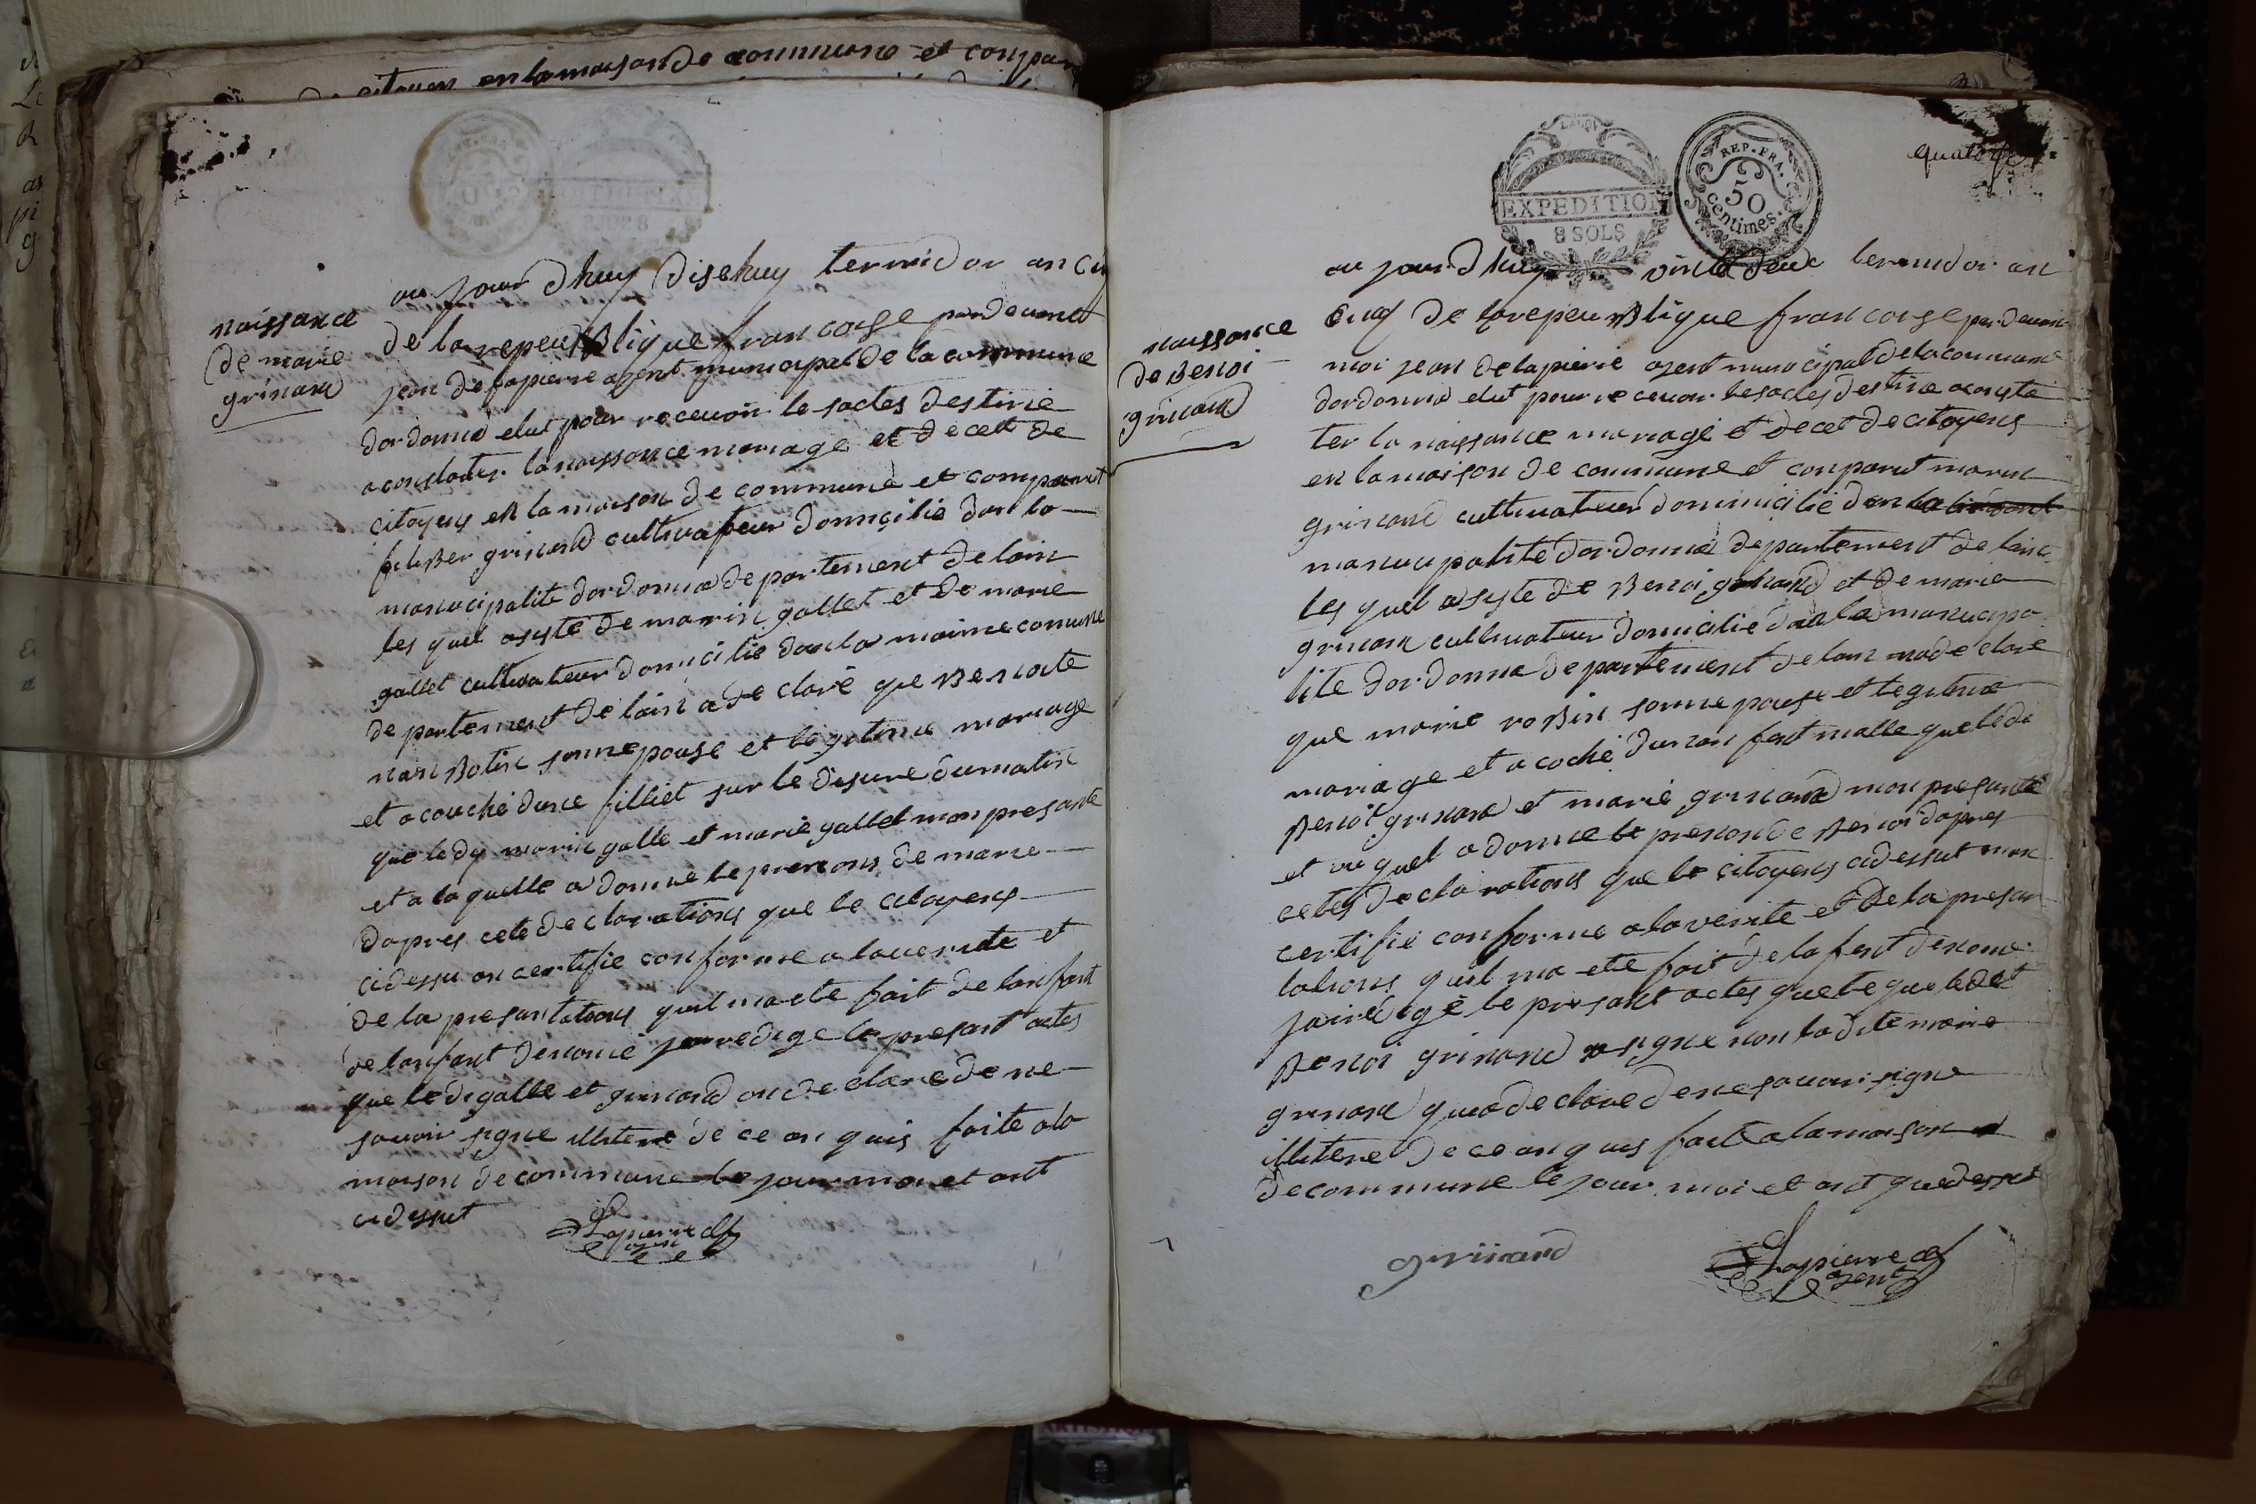 citoyens en la maison de commune et conpar
naissance
de marie
grinand
au jourdhuy disehuy termidor an cin
de la repeublique francoise pardevant
jean delapierre agent municipal de la commune
dordonna elut pour recevoir le sactes destine
a constater la naissance mariage et decett de
citoyens en la maison de commune et comparut
filiber grinand cultivateur domicilié dan la
manucipalité dordonna departement de lain
les quel asysté de marin gallet et de marie
gallet cultivateur domicilié dan la maime comune
departement de lain a de claré que Benoite
nanbotin sonnepouse et legitime mariage
et acouché dune filliet sur le disseure dumatin
que ledy marin galle et marie gallet mon presanté
et a laquelle a donné le prenons de marie
dapres cete declarations que le citoyens
cidessu on certifie conforme a laverite et
de la presantations quil ma ete fait de lanfant
de lanfant denomé jai redige le presant actes
que le di galle et grinand on declare de ne
savoir signe illitere de ce on quis faite a la
maison de commune le jour mois et ant
cidessut
Lapierre
agent
EXPEDITION
8 SOLS
REP. FRA.
50
centimes.
quatorze
naissance
de Benoi
grinand
au jourdhuy vint deux termidor an
cinq de la repeublique francoise pardevant
moi jean delapierre agent municipal de la commune
dordonna elut pour recevoir lesactes destine aconsta
ter la naissance mariage et decet de citoyens
en la maison de commune et conparut marin
grinand cultivateur dominicilié dan la
manucipalité dordonna departement de lain
les quel asyste de Benoi grinand et de marie
grinand cultivateur domicilié dan la manucipa
lité dordonna departement de lain ma declaré
que marie robin sonne pouse et legitime
mariage et acoché dun an fent malle que le di
Benoit grinand et marie grinand mon presanté
et au quel a donne le prenon de Benoi dapres
cetes declarations que le citoyens cidessut mon
certifié conforme a la verite et de la presan
tations quil ma ete fait de la fent denome
jai redigé le presant actes que le que ledit
Benoi grinand a signe non la dite marie
grinand qui a declare de ne savoir signe
illitere de ce on quis fait a la maison
de commune le jour moi et ant que dessut
grinand
Lapierre
agent